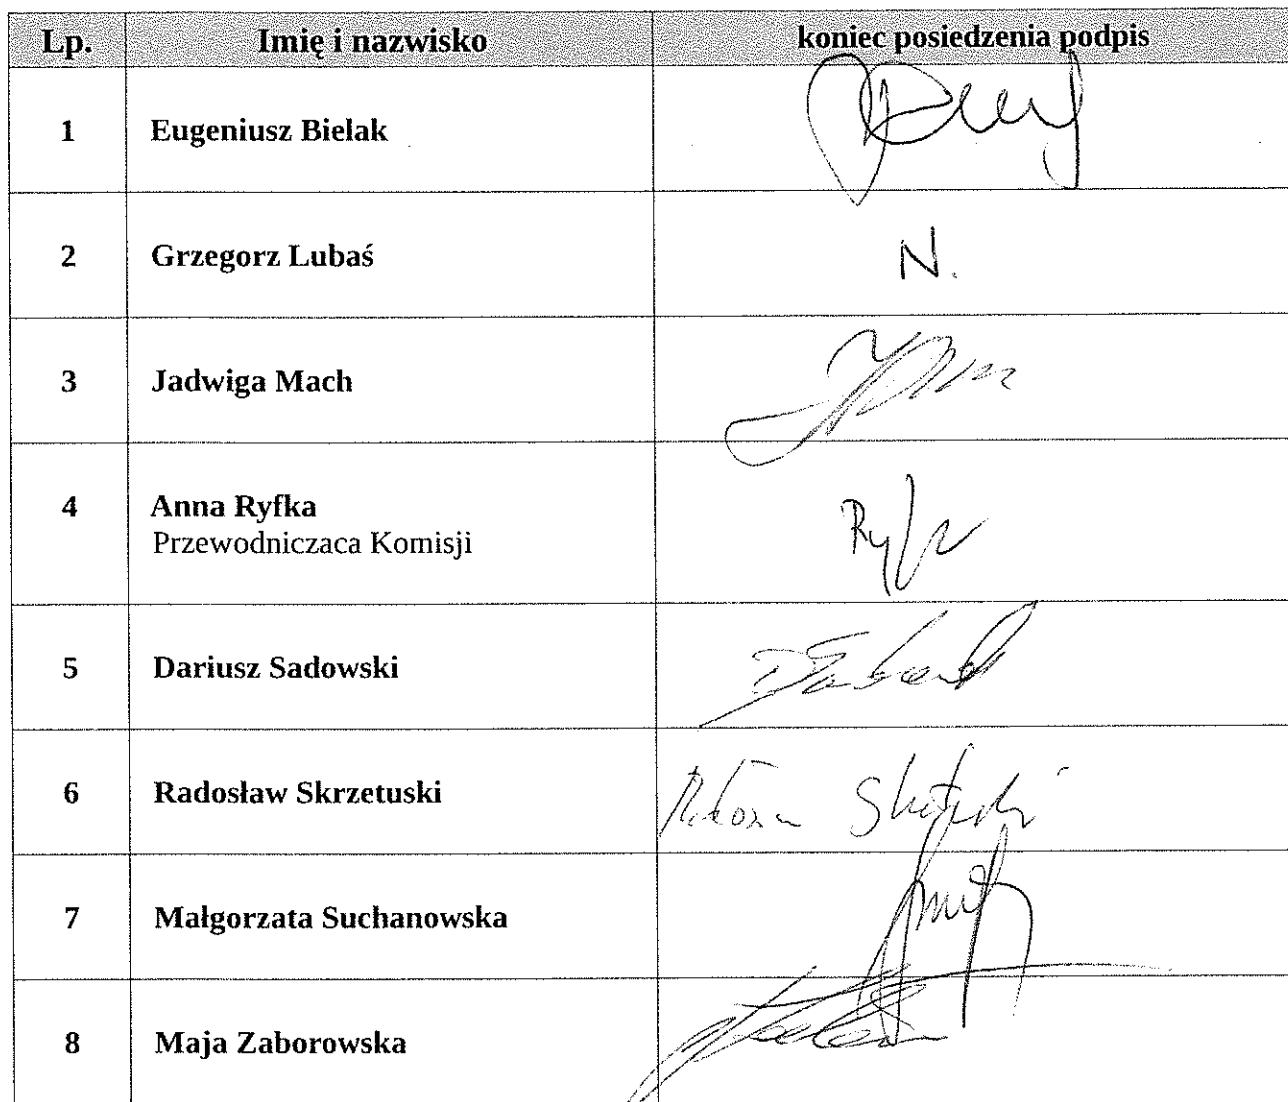 Lp. Imię i nazwisko koniec posiedzenia podpis
1 Eugeniusz Bielak
2 Grzegorz Lubaś N.
3 Jadwiga Mach
4 Anna Ryfka
Przewodniczaca Komisji
5 Dariusz Sadowski
6 Radosław Skrzetuski
7 Małgorzata Suchanowska
8 Maja Zaborowska